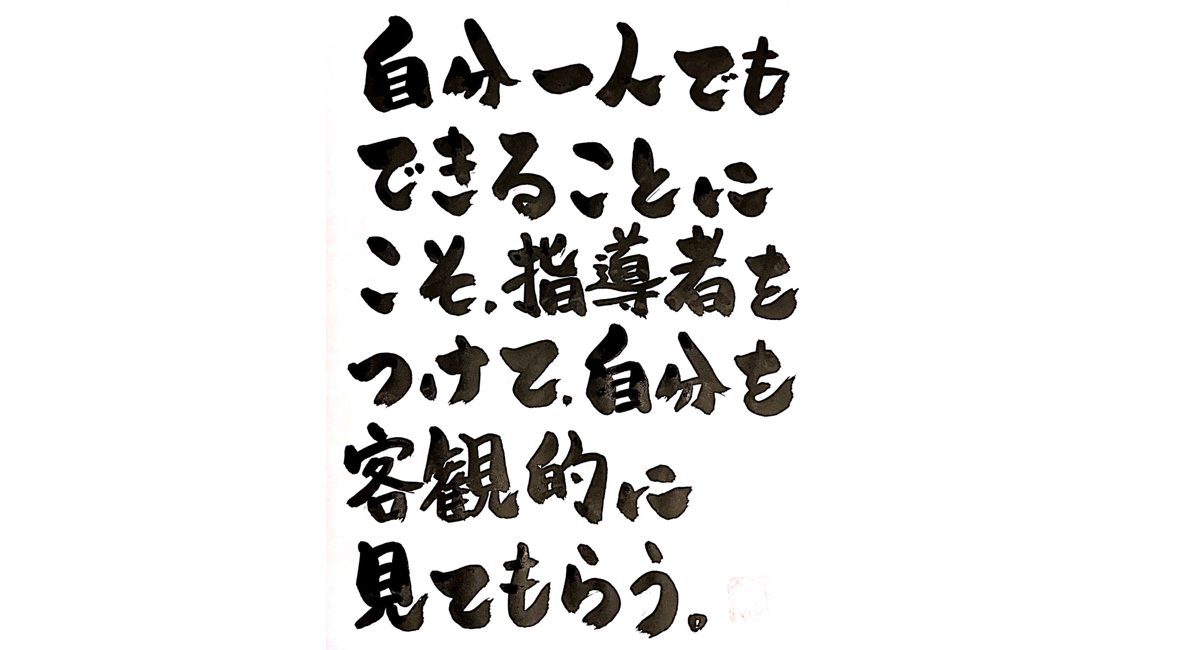 自分一人でも
できることに
こそ、指導者を
つけて、自分を
客観的に
見てもらう。